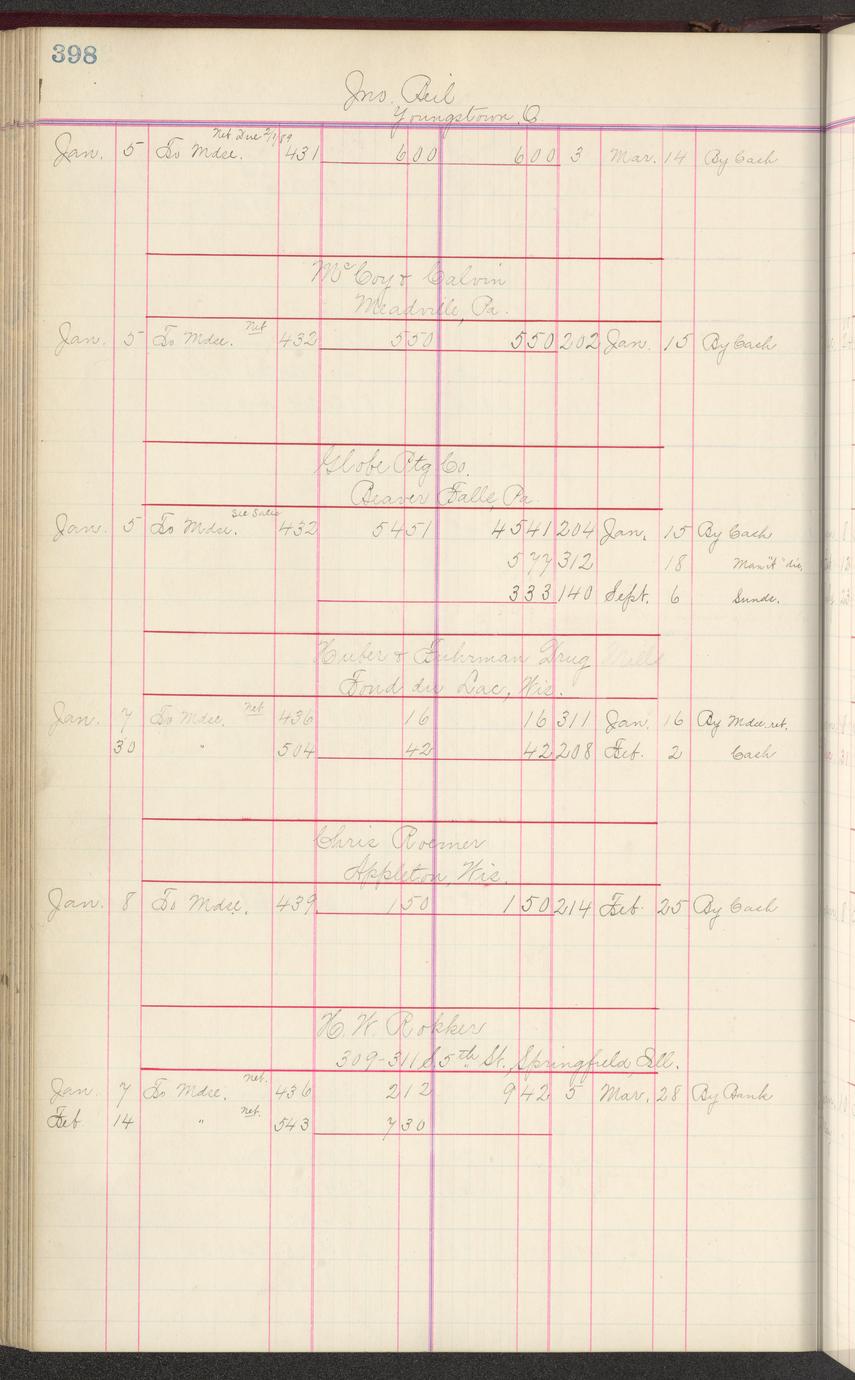 398
Jno. Beil
Youngstown, O
Net Due 2/1/89
Jan. 5 To Mdse. 431 600 600 3 Mar. 14 By Cash
McCoy & Calvin
Meadville, Pa.
Jan. 5 To Mdse. Net 432 550 550 202 Jan. 15 By Cash
Globe Ptg Co.
Beaver Falls, Pa
Jan. 5 To Mdse. See Sales 432 5451 4541 204 Jan. 15 By Cash
577 312 18
333 140 Sept. 6 Sunds.
Huber & Fuhrman Drug Mills
Fond du Lac, Wis.
Jan. 7 To Mdse. Net 436 16 16 311 Jan. 16 By Mdse. ret.
30 " 504 42 42 208 Feb. 2 Cash
Chris Roemer
Appleton, Wis.
Jan. 8 To Mdse. 439 150 150 214 Feb. 25 By Cash
H. W. Rokker
309-311 S. 5th St. Springfield Ill.
Jan. 7 To Mdse. net. 436 212 942 5 Mar. 28 By Bank
Feb. 14 " net. 543 730